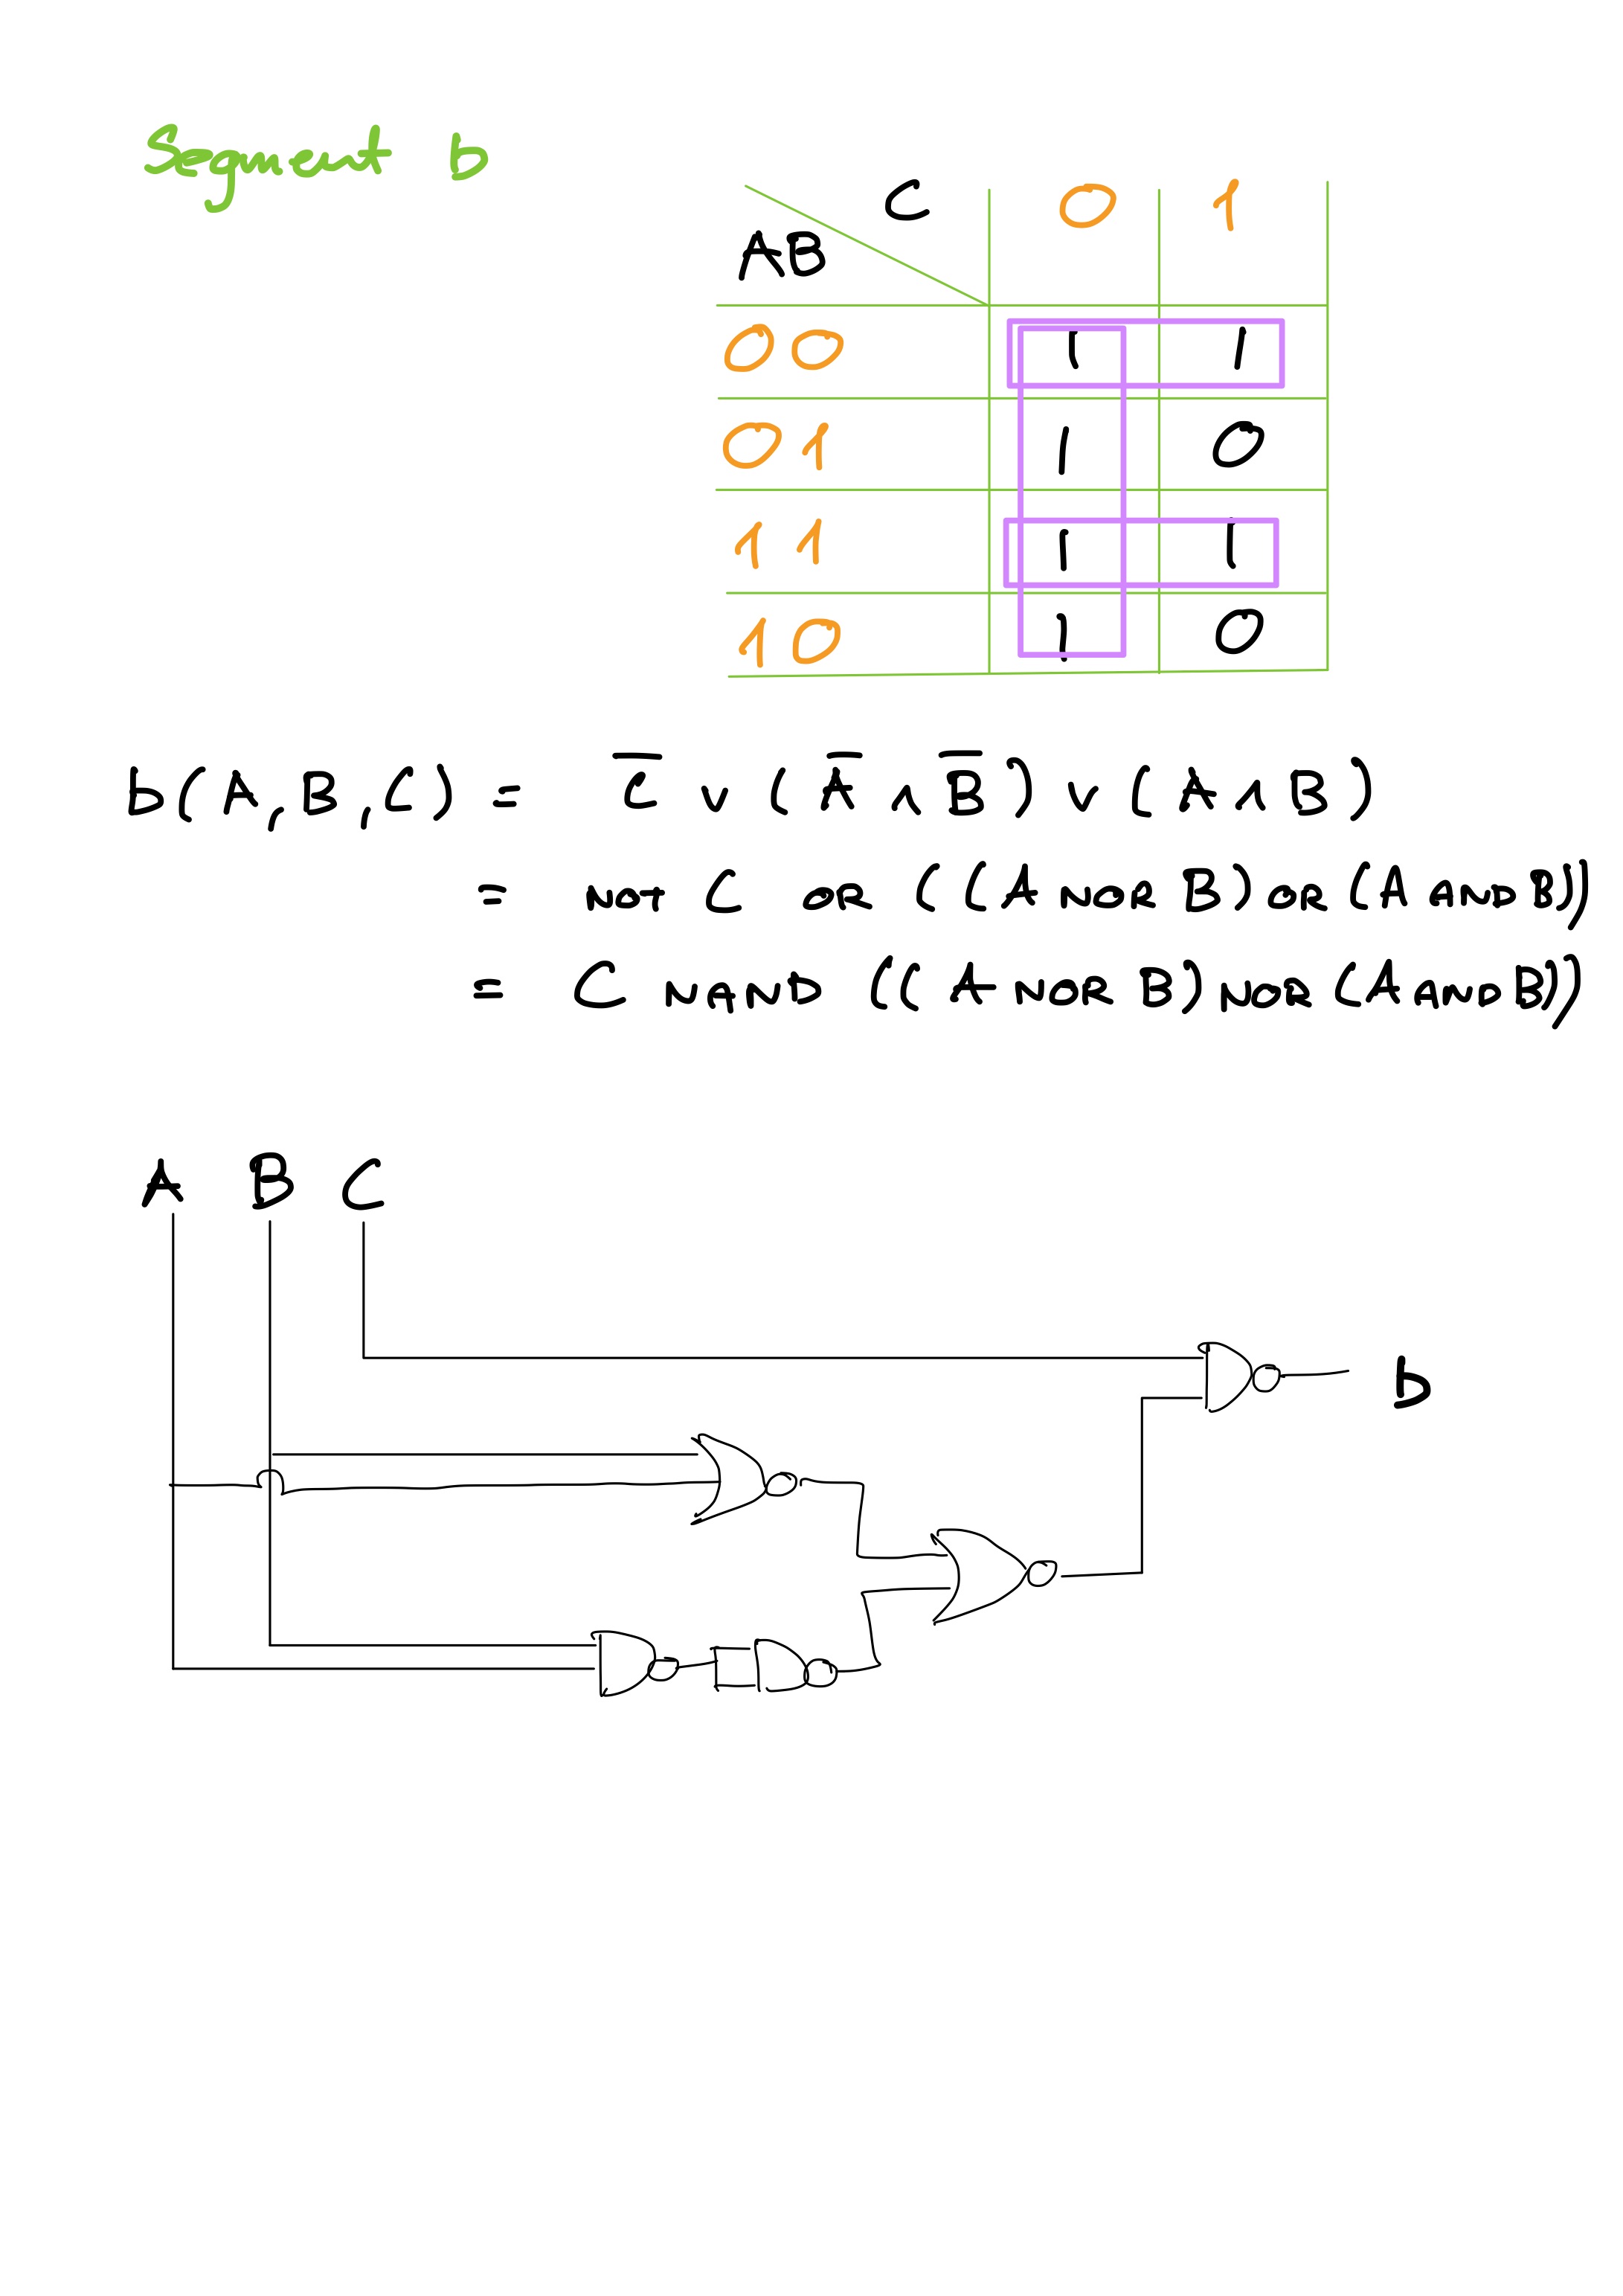 Segment b
C 0 1
AB
00 1 1
01 1 0
11 1 1
10 1 0
b(A,B,C) = C̅ ∨ (A̅ ∧ B̅) ∨ (A ∧ B)
= not C OR ((A NOR B) OR (A AND B))
= C NAND ((A NOR B) NOR (A AND B))
A B C
b